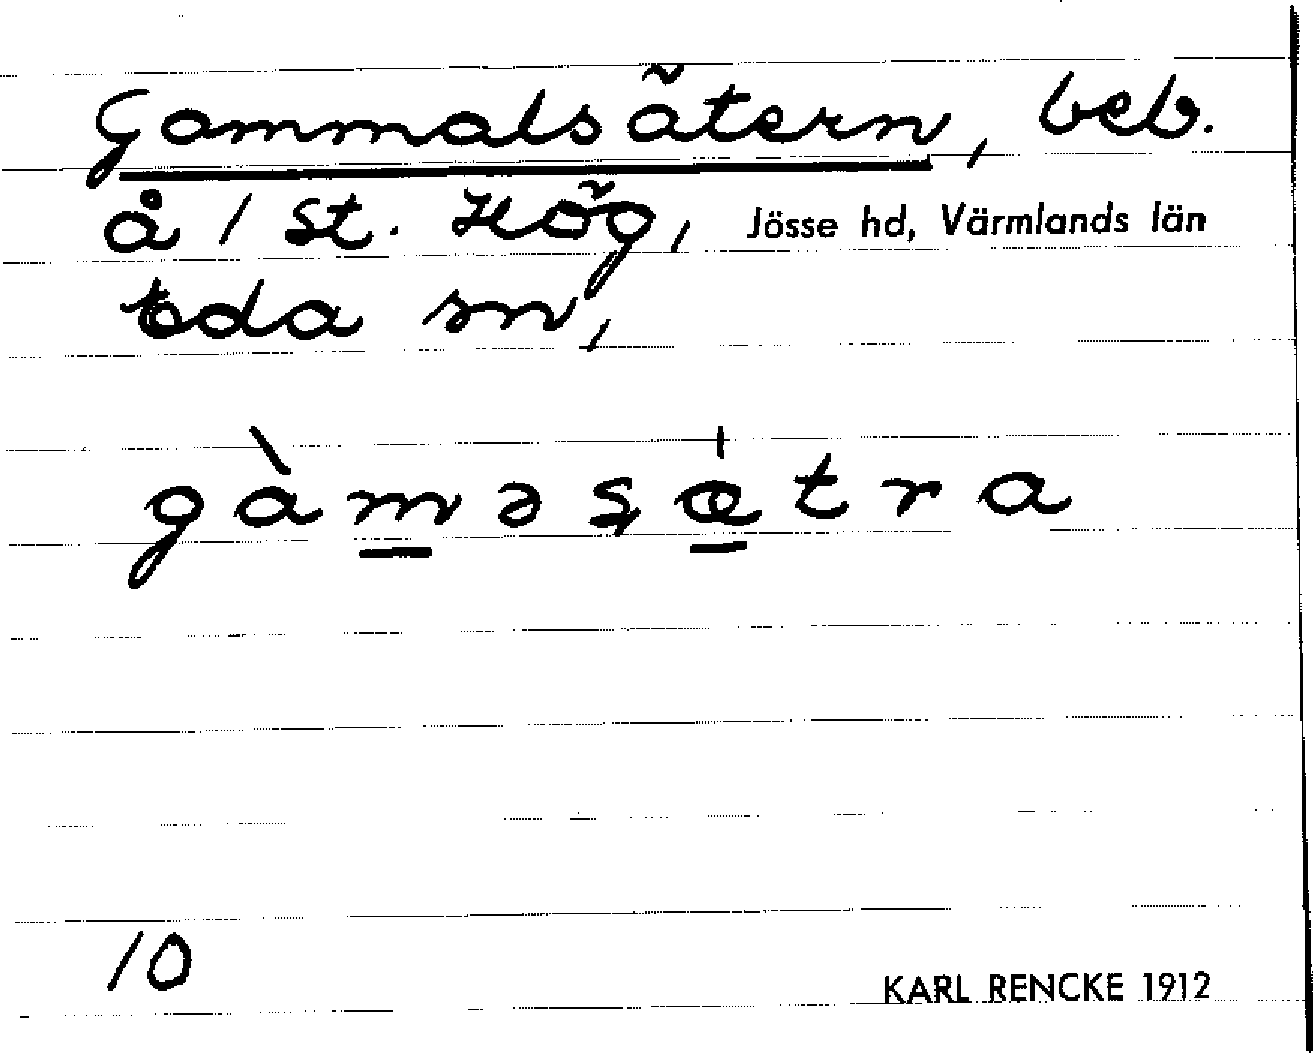 Gammalsätern, beb.
å 1 st. Hög, Jösse hd, Värmlands län
Eda sn,
gàməsætra
10
KARL RENCKE 1912